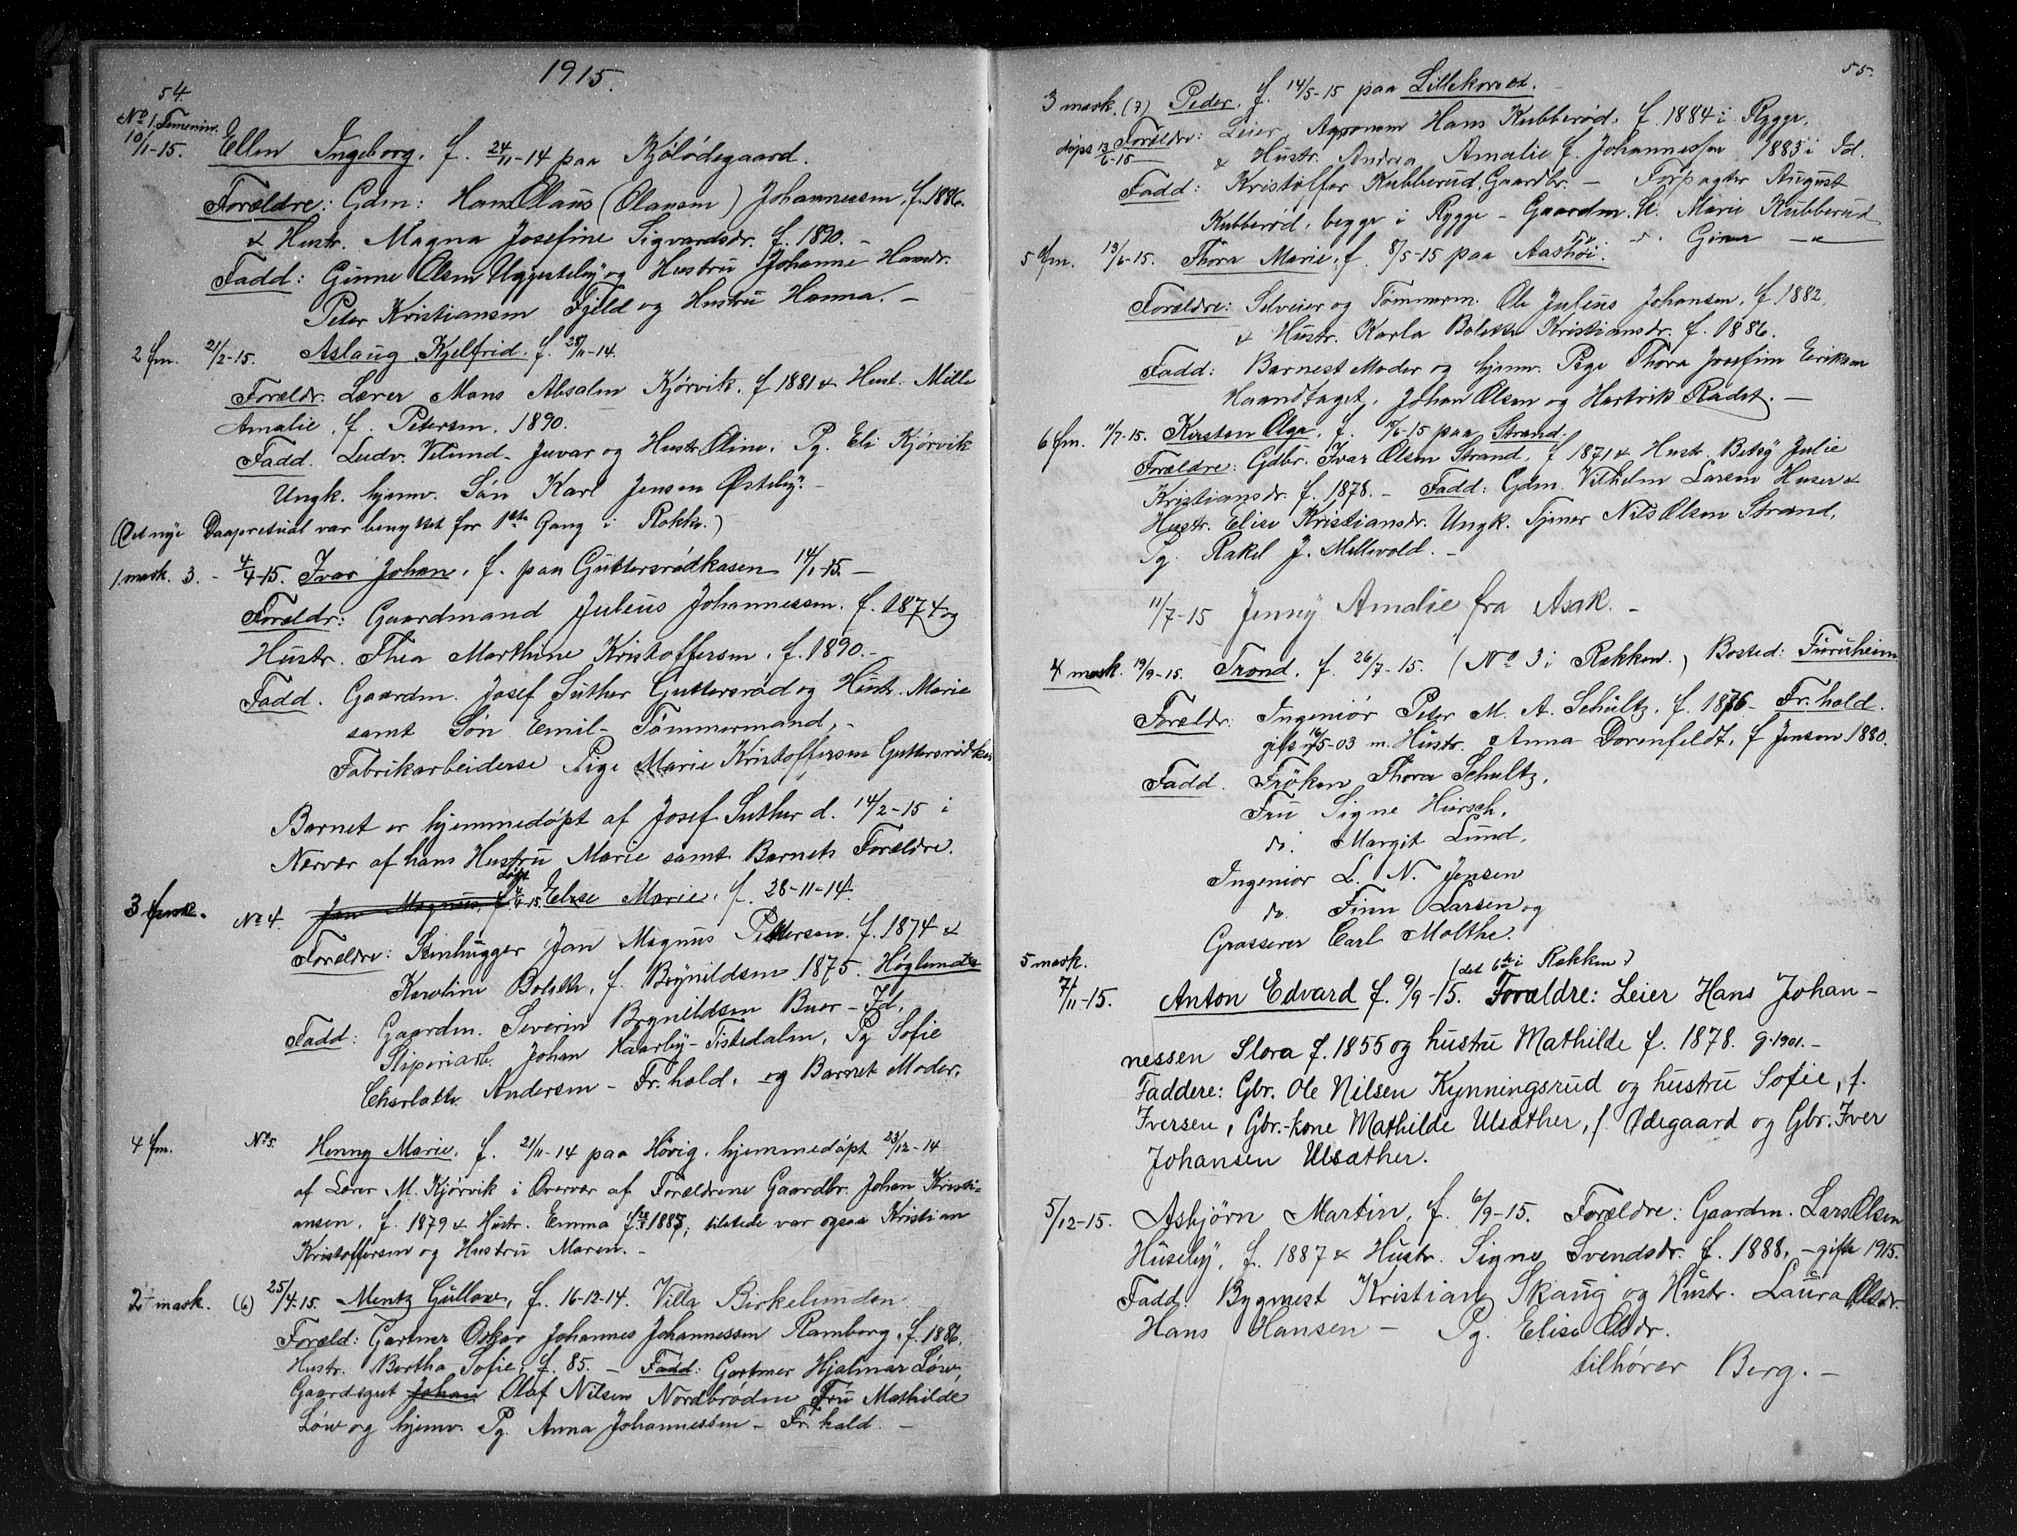 54.
1915.
No 1. Femenin.
10/1-15. Ellen Ingeborg, f. 24/11-14 paa Kjølødegaard.
Forældre: Gdm: Hans Olaus (Olausen) Johannessen, f. 1886.
& Hustr. Magna Josefine Sigvardsdr. f. 1890. –
Fadd: Gunne Olsen Uggesteby og Hustru Johanne Hansdr.
Peter Kristiansen Fjeld og Hustru Hanna. –
2 fm. 21/2-15. Aslaug Kjelfrid. f. 28/11-14.
Forældr. Lærer Mons Absalon Kjørvik. f 1881 & Hust. Mille
Amalie, f. Petersen, 1890.
Fadd. Ludv. Velund – Juvar og Hustr. Oline, Pg. Eli Kjørvik
Ungk. hjemv. Søn Karl Jensen Østeby. –
(Det nye Daapsritual var benyttet for 1ste Gang i Rokke.)
1. mask. 3. – 4/4-15. Ivar Johan, f. paa Guttersrødkasen 14/1-15. –
Forældr: Gaardmand Julius Johannessen. f. 1874 og
Hustr. Thea Marthine Kristoffersen, f. 1890. –
Fadd. Gaardm. Josef Suther Guttersrød og Hustr. Marie
samt Søn Emil – Tømmermand, –
Fabrikarbeiderske Pige Marie Kristoffersen Guttersrødkas
Barnet er hjemmedøpt af Josef Suther d. 14/2-15 i
Nærvær af hans Hustru Marie samt Barnets Forældre.
3 fm. No 4. Jan Magnus, f. døpt 4/4-15. Else Marie, f. 28-11-14.
Forældre: Stenhugger Jan Magnus Pettersen. f. 1874 &
Karoline Bolette, f. Brynildsen 1875. Høglund
Fadd: Gaardm. Severin Brynildsen Buer – Id,
Sliperiarb. Johan Haarby – Tistedalen, Pg Sofie
Charlotte Andersen – Fr.hald, og Barnets Moder.
4 fm. No 5. Henny Marie, f. 21/11-14 paa Høvig, hjemmedøpt 23/12-14
af Lærer M. Kjørvik i Overvær af Forældrene Gaardbr. Johan Kristi-
ansen, f. 1879 & Hustr. Emma f. 1887, tilstede var ogsaa Kristian
Kristoffersen og Hustru Maren. –
2 mask. (6) 25/4-15. Mentz Gulløw, f. 16-12-14. Villa Birkelunden
Foræld: Gartner Oskar Johannes Johannessen Ramberg, f. 1886,
Hustr. Bertha Sofie, f. 85. – Fadd: Gartner Hjalmar Løw,
Gaardsgut Johan Olaf Nilsen Nordbrøden Fru Mathilde
Løw og hjemv. Pg. Anna Johannessen – Fr.hald. –
55.
3 mask. (7) Peder, f. 14/5-15 paa Lillekorrød.
døpt 13/6-15 Forældr: Leier, Agronom Hans Kubberød, f. 1884 i Rygge,
& Hustr. Andrea Amalie f. Johannessen 1883 i Id.
Fadd: Kristoffer Kubberud, Gaardbr. – Forpagter August
Kubberød, begge i Rygge – Gaardm. H. Marie Kubberud
do. Gina –"–
5 fm. 13/6-15. Thora Marie, f. 8/5-15 paa Aashøi.
Forældre: Selveier og Tømmerm. Ole Julius Johansen, f 1882,
& Hustr. Karla Bolette Kristiansdr. f. 1886.
Fadd: Barnest Moder og hjemv. Pige Thora Josefine Eriksen
Haandtaget, Johan Olsen og Hartvik Rødst. –
6 fm. 11/7-15. Kirsten Olga, f. 15/6-15 paa Strand.
Forældre: Gdbr. Ivar Olsen Strand, f 1871 & Hustr. Betsy Julie
Kristiansdr. f. 1878. – Fadd: Gdm. Vilhelm Larsen Huser &
Hustr. Elise Kristiansdr. Ungk. Tjener Nils Olsen Strand,
Pg Rakel J. Mellevold. –
11/7-15 Jenny Amalie fra Asak. –
4 mask. 19/9-15. Trond, f. 26/7-15. (No 3 i Rækken.) Bosted: Furuheim
Forældr: Ingeniør Peter M. A. Schultz, f. 1876 – Fr.hald.
gift 16/5-03 m. Hustr. Anna Dorenfeldt, f Jensen 1880.
Fadd. Frøken Thora Schultz,
Fru Signe Hirsch,
do. Margit Lund,
Ingeniør L. N. Jensen
do. Finn Larsen og
Grosserer Carl Molthe.
5 mask. (det 6te i Rækken)
7/11-15. Anton Edvard f. 9/9-15. Forældre: Leier Hans Johan-
nessen Slora f. 1855 og hustru Mathilde f. 1878. g. 1901. –
Faddere: Gbr. Ole Nilsen Kynningsrud og hustru Sofie, f.
Iversen, Gbr.-kone Mathilde Ulsæther, f. Ødegaard og Gbr. Iver
Johansen Ulsæther.
5/12-15. Asbjørn Martin, f. 6/9-15. Forældre: Gaardm. Lars Olsen
Huseby, f. 1887 & Hustr. Signe Svendsdr. f. 1888, – gifte 1915.
Fadd: Bygmest Kristian Skaug og Hustr. Laura Olsdr.
Hans Hansen – Pg. Elise Olsdr.
tilhører Berg. –